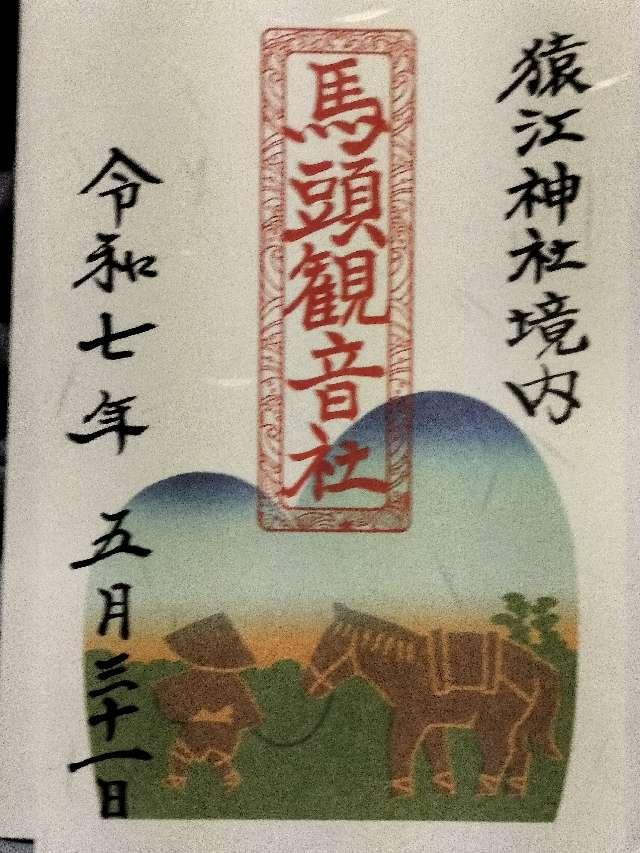 猿江神社境内
馬頭観音社
令和七年 五月三十一日